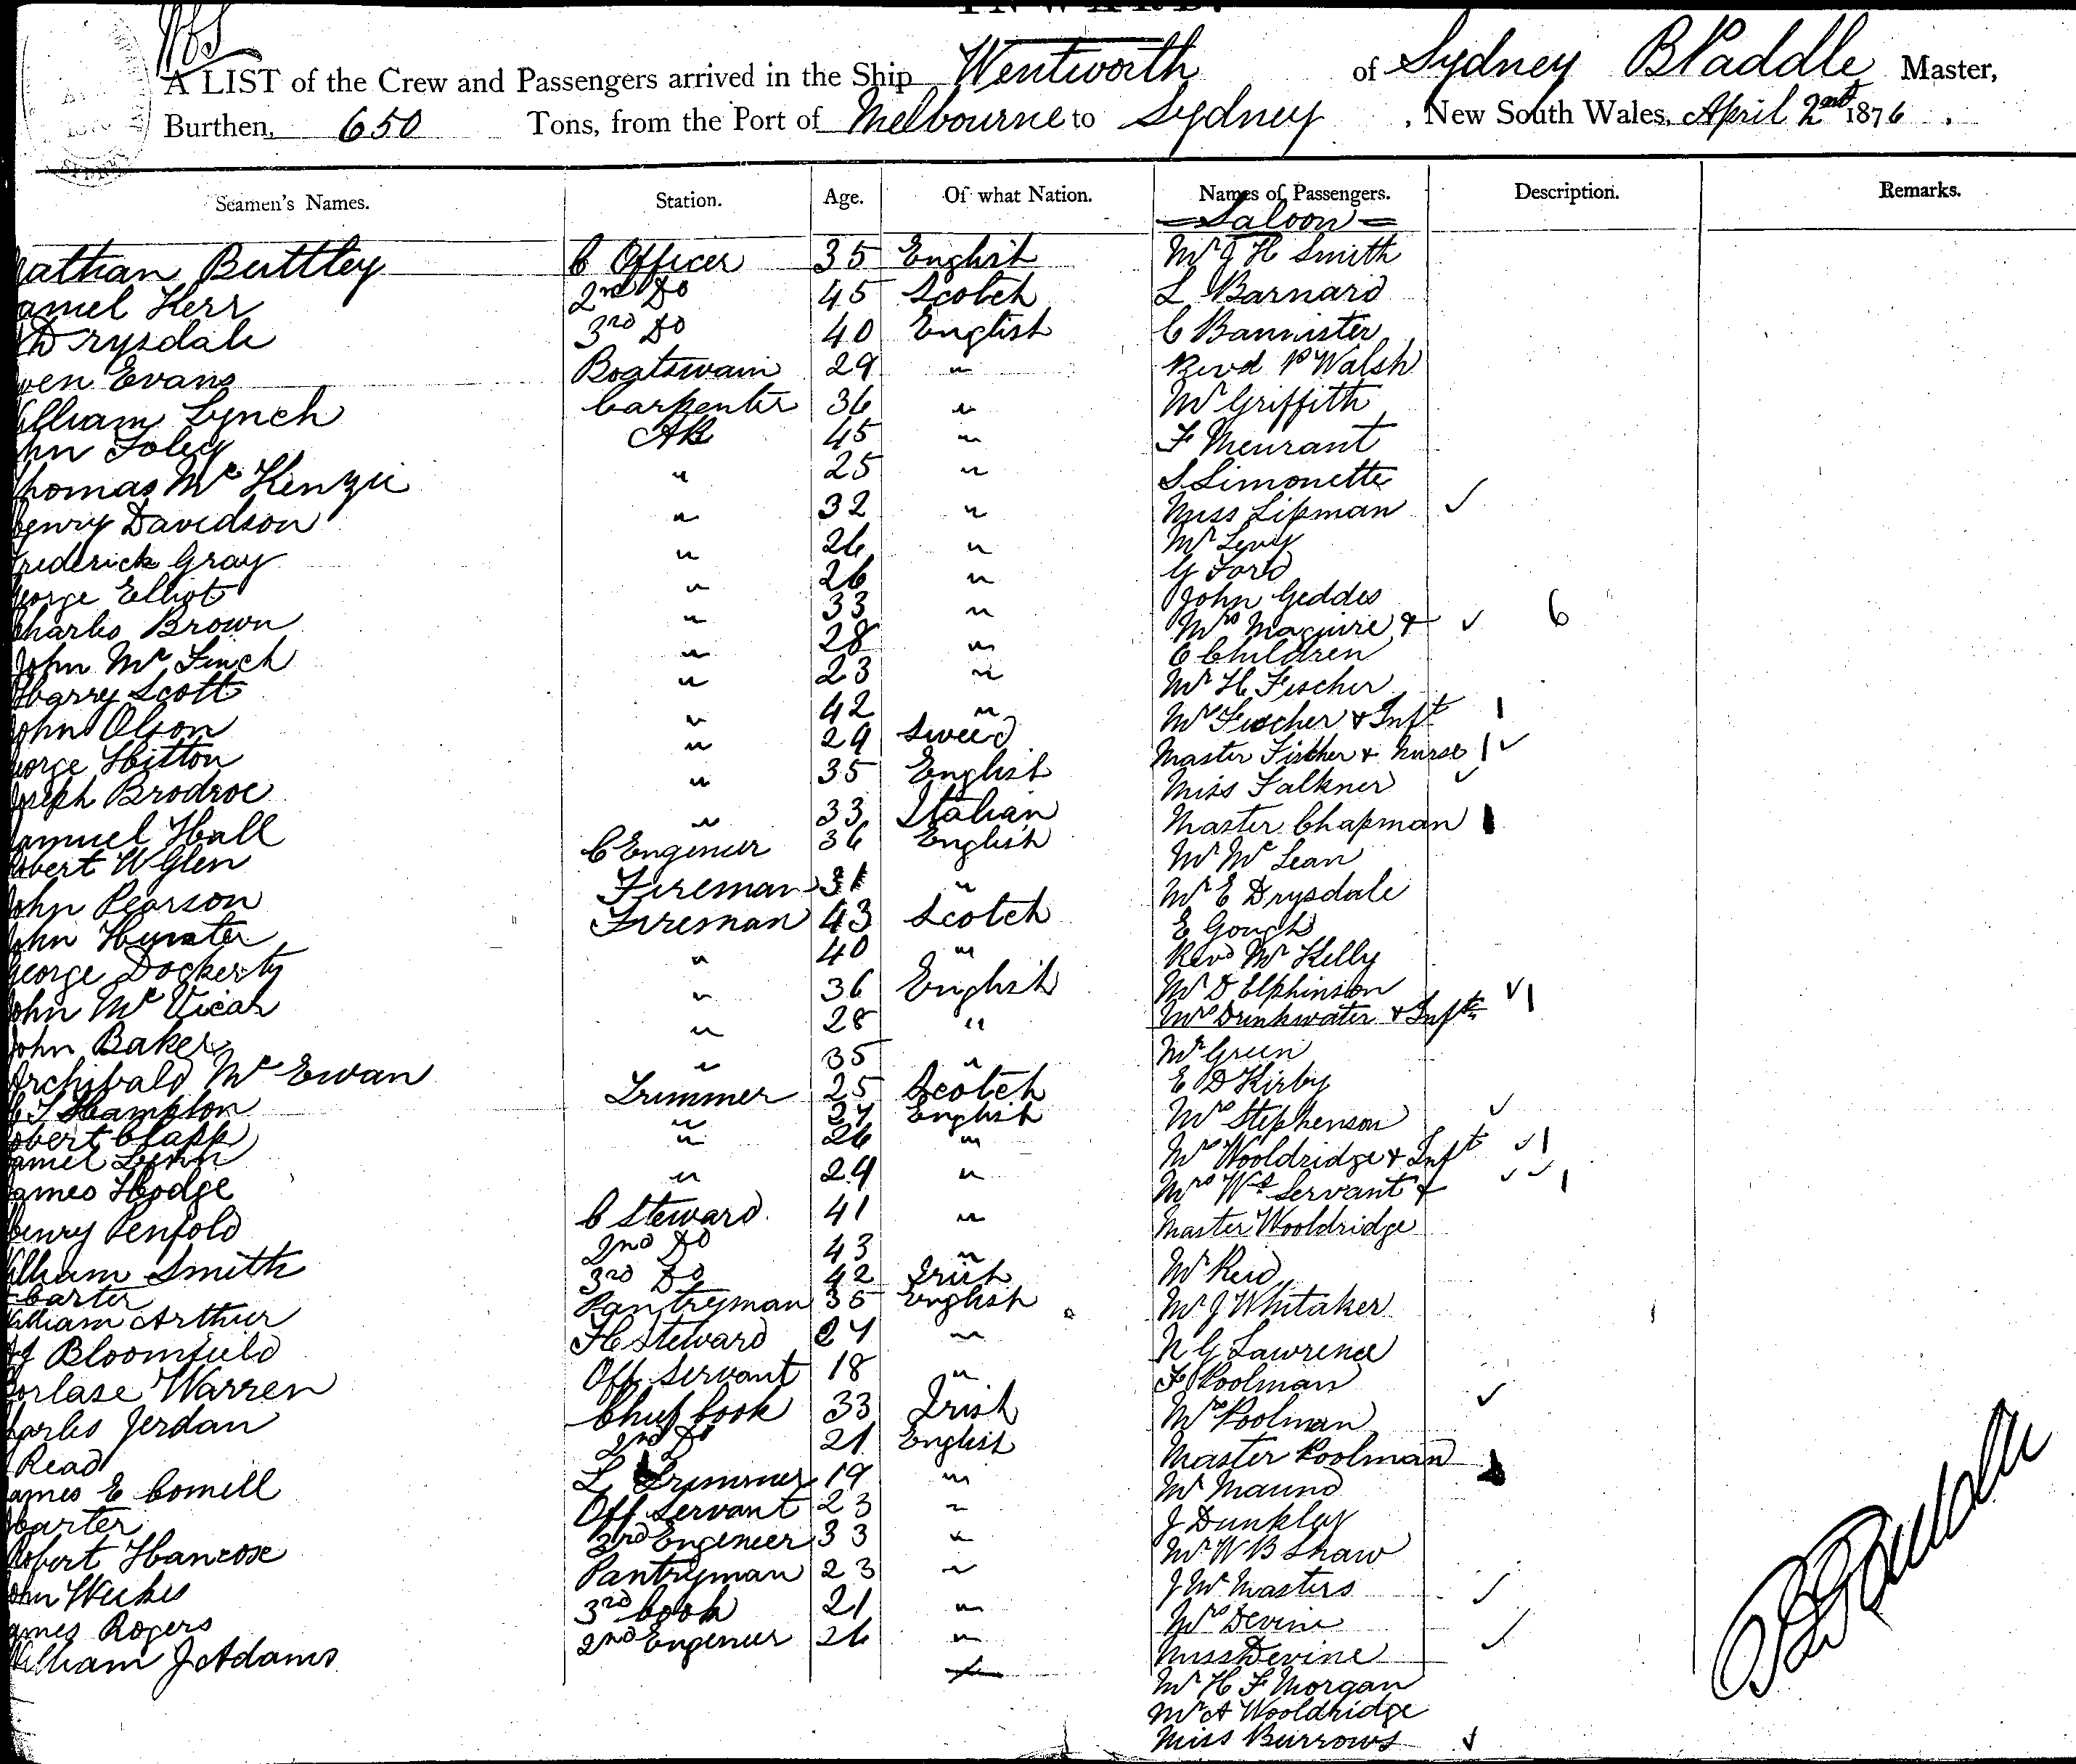 INWARD.
A LIST of the Crew and Passengers arrived in the Ship Wentworth of Sydney B Paddle Master,
Burthen, 650 Tons, from the Port of Melbourne to Sydney, New South Wales, April 2nd 1876.
Seamen's Names. Station. Age. Of what Nation. Names of Passengers. Description. Remarks.
= Saloon =
athan Buttley C Officer 35 English Mr J H Smith
amel Kerr 2nd Do 45 Scotch L Barnard
Drysdale 3rd Do 40 English C Bannister
wen Evans Boatswain 29 " Revd P Walsh
illiam Lynch Carpenter 36 " Mr Griffith
hn Foley AB 45 " F Meurant
homas Mc Kenzie " 25 " S Simonette
Henry Davidson " 32 " Miss Lipman ✓
rederick Gray " 26 " Mr Levy
George Elliot " 26 " G Ford
Charles Brown " 33 " John Geddes
John Mc Finch " 28 " Mrs Maguire & ✓ 6
Harry Scott " 23 " 6 Children
John Olson " 42 " Mr H Fischer
eorge Hitton " 29 Sweed Mrs Fischer & Inft 1
oseph Brodroe " 35 English Master Fischer & Nurse 1 ✓
Samuel Hall " 33 Italian Miss Falkner ✓
obert W Glen C Engineer 36 English Master Chapman 1
John Pearson Fireman 31 " Mr Mc Lean
John Hunter Fireman 43 Scotch Mr E Drysdale
George Dockerty " 40 " E Gough
John Mc Vicar " 36 English Revd Mr Kelly
John Baker " 28 " Mr D Elphinston
Archibald Mc Ewan " 35 " Mrs Drinkwater & Inft ✓ 1
Hampton Trimmer 25 Scotch Mr Green
obert Clark " 27 English E D Kirby
amel Lynn " 26 " Mrs Stephenson ✓
ames Hodge " 29 " Mrs Wooldridge & Inft ✓ 1
Henry Penfold C Steward 41 " Mrs Ws Servant & ✓ ✓ 1
illiam Smith 2nd Do 43 " Master Wooldridge
Carter 3rd Do 42 Irish Mr Reid
William Arthur Pantryman 35 English Mr J Whitaker
J Bloomfield F C Steward 27 " N G Lawrence
orlase Warren Off Servant 18 " F Poolman
harles Jerdan Chief Cook 33 Irish Mrs Poolman ✓
Read 2nd Do 21 English Master Poolman 1
ames E Comell L Trimmer 19 " Mr Maund
Carter Off Servant 23 " J Dunkley
Robert Hancose 3rd Engineer 33 " Mr W B Shaw
ohn Weekes Pantryman 23 " J W Masters
ames Rogers 3rd Cook 21 " Mrs Devine ✓
William J Adams 2nd Engineer 26 " Miss Devine ✓
Mr H F Morgan
Mr A Wooldridge
Miss Burrows ✓